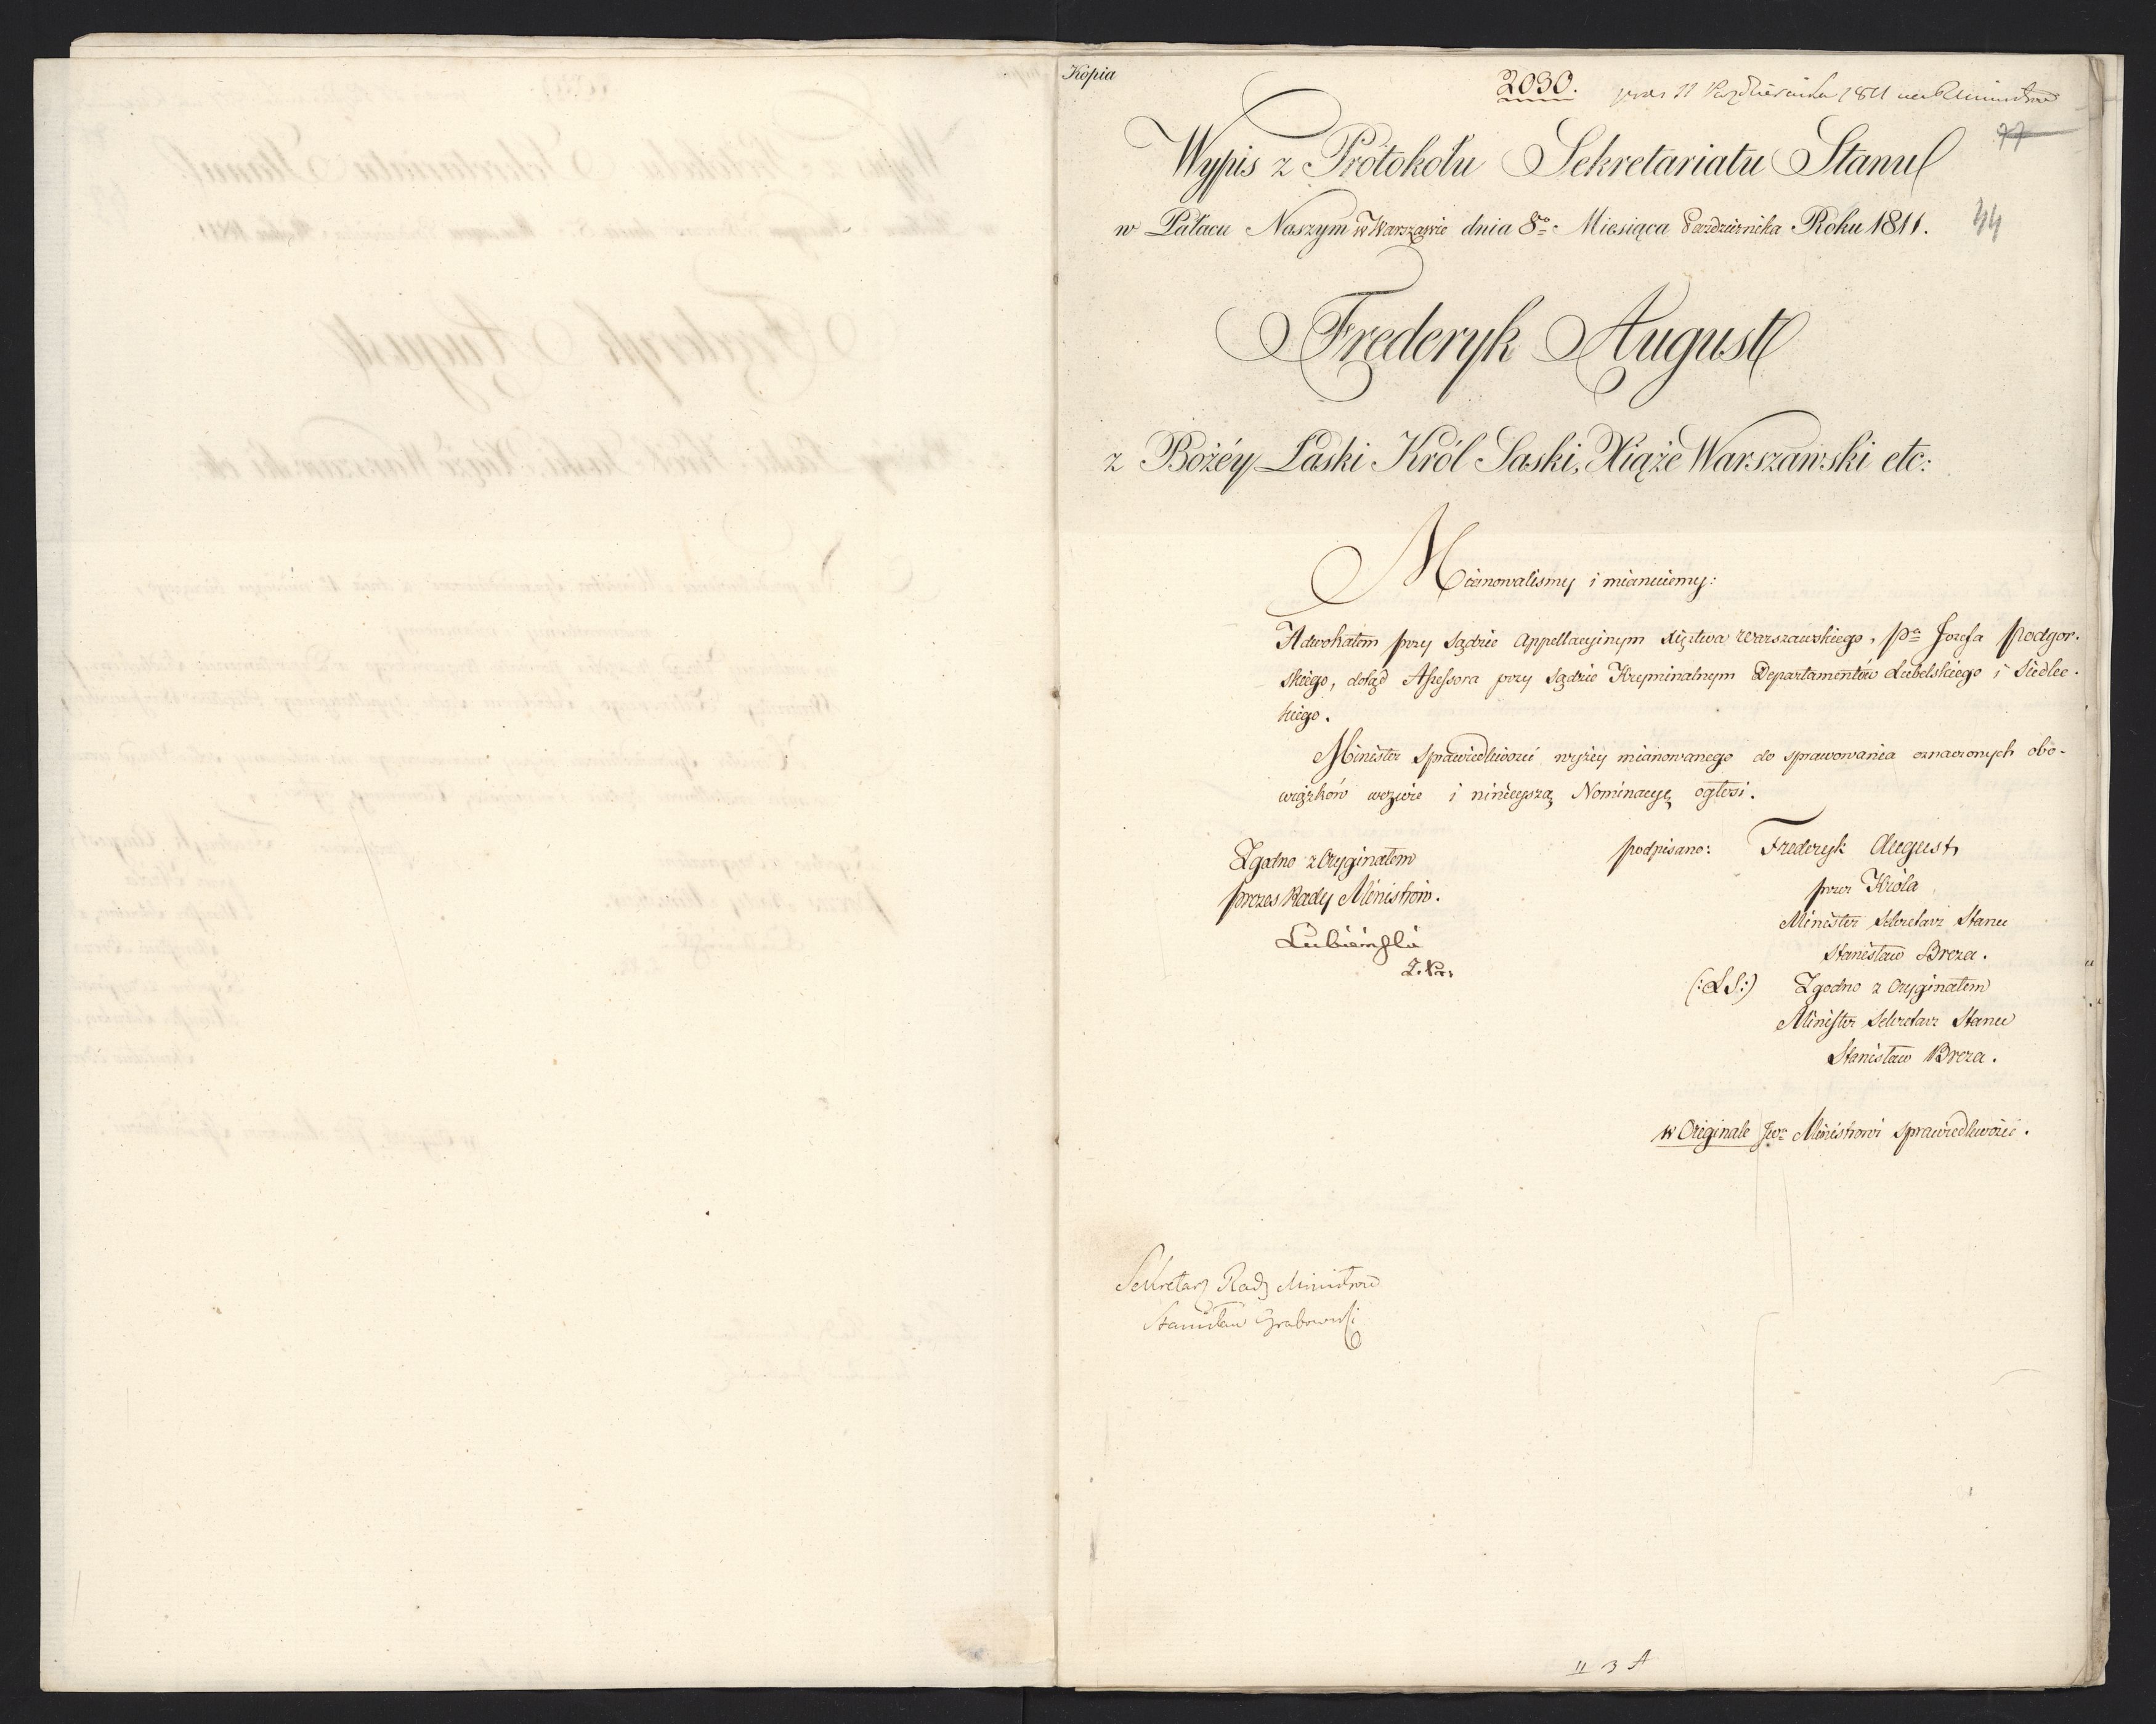 Kopia
2030.
pręs 11 Października 1811 na Ministrów
77
Wypis z Protokołu Sekretariatu Stanu
w Pałacu Naszym w Warszawie dnia 8go Miesiąca Października Roku 1811.
44
Frederyk August
z Bożéy Łaski Król Saski, Xiąże Warszawski etc:
Mianowaliśmy i mianuiemy:
Adwokatem przy Sądzie Appellacyinym Xięztwa Warszawskiego, Pna Jozefa Podgor-
skiego, dotąd Assessora przy Sądzie Kryminalnym Departamentów Lubelskiego i Siedlec-
kiego.
Minister Sprawiedliwości wyżey mianowanego do sprawowania oznaczonych obo-
wiązków wezwie i ninieyszą Nominacyę ogłosi.
Zgodno z Oryginałem
Prezes Rady Ministrów.
Lubieński
Z. Pr.
podpisano: Frederyk August
przez Króla
Minister Sekretarz Stanu
Stanisław Breza.
(:LS:) Zgodno z Oryginałem
Minister Sekretarz Stanu
Stanisław Breza.
w Originale JWu Ministrowi Sprawiedliwości.
Sekretarz Rady Ministrów
Stanisław Grabowski
II 3 A